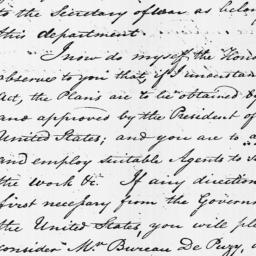 to the Secretary of war as belon
this department.
I now do myself the Hono
observe to you that, if I understand
Act, the Plans are to be obtained by
and approved by the President of
United States; and you are to a
and employ suitable Agents to
the work &c. If any direction
first necessary from the Governm
the United States, you will plea
consider Mr Bureau De Puzy,